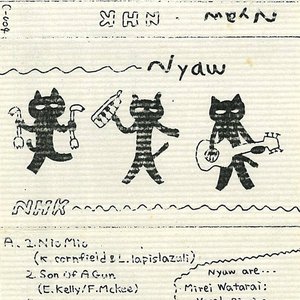 NHK
Nyaw
Nyaw
NHK
A. 1. Nio Mio
(K. cornfield & L. lapislazuli)
2. Son Of A Gun
(E. Kelly/F. Mckee)
Nyaw are...
Mirei Watarai: